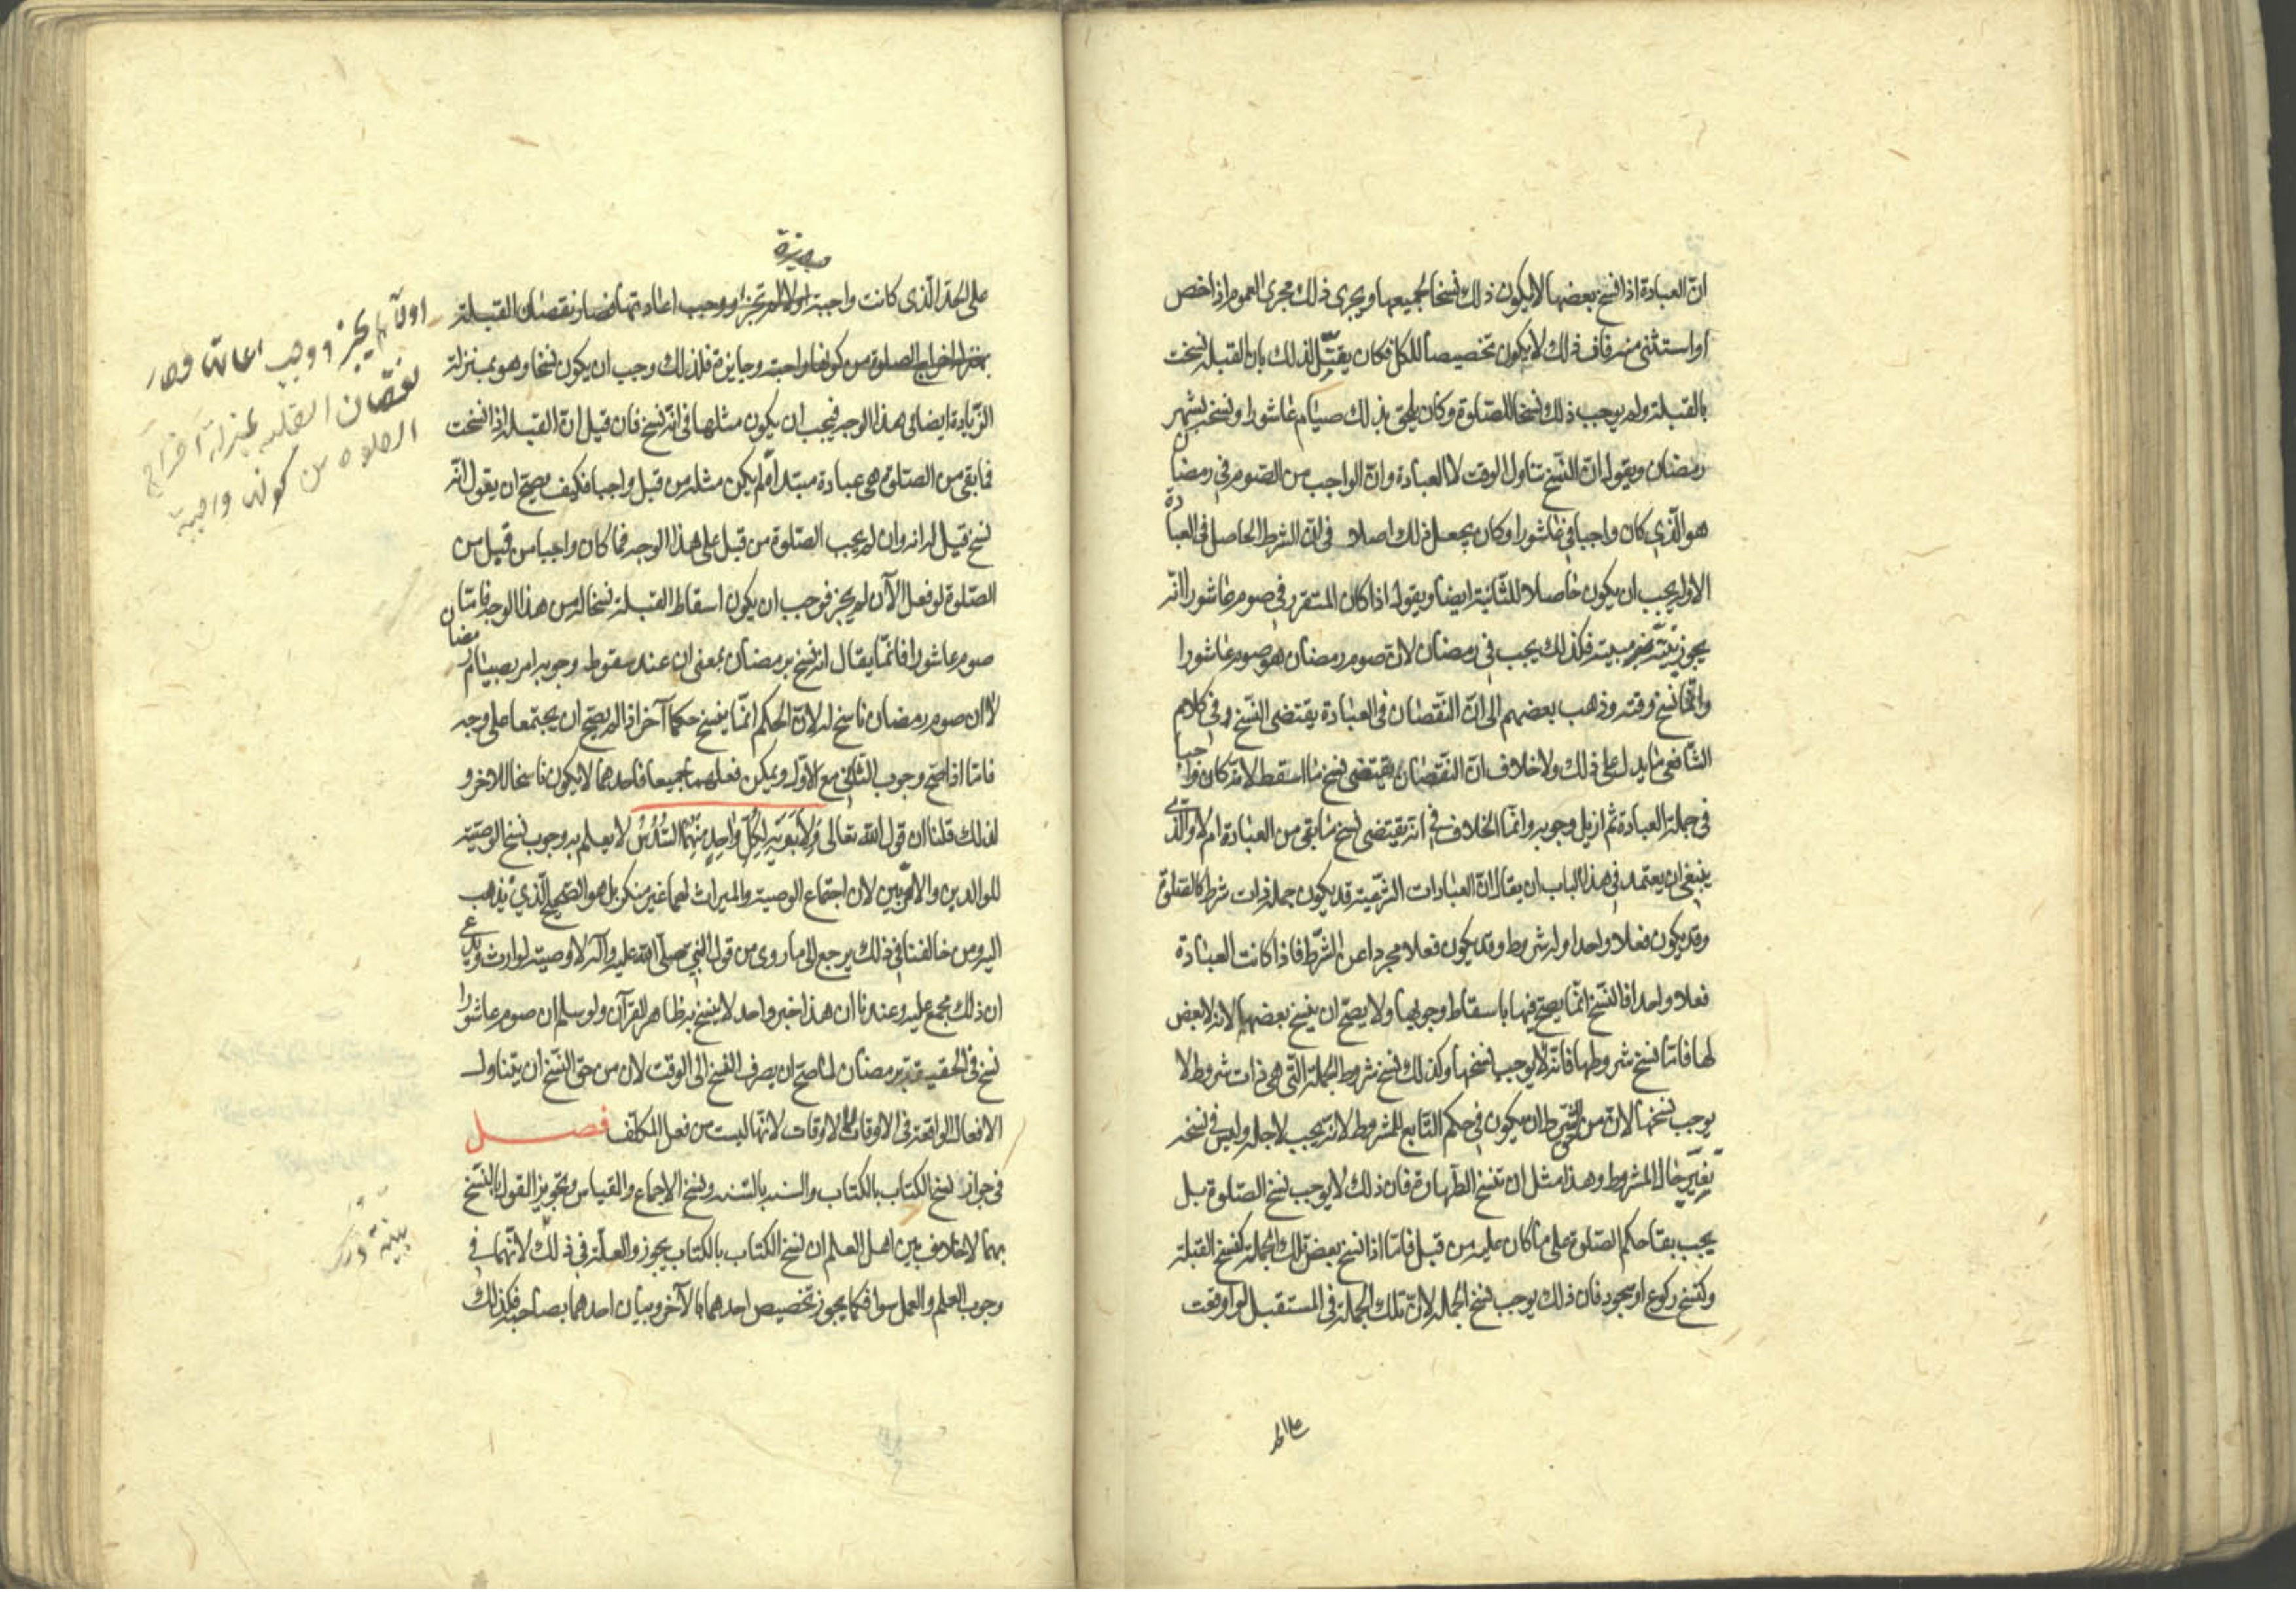 انّ العبادة اذا نسخ بعضها لا يكون ذلك نسخا لجميعها ويجري ذلك مجرى العموم اذا خص
او استثنى منه فان ذلك لا يكون تخصيصا للكل فكان يقبّل لذلك بان القبلة نسخت
بالقبلة ولم يوجب ذلك نسخا للصّلوة وكان يلحق بذلك صيام عاشورا ونسخه بشهر
رمضان ويقول انّ النّسخ تناول الوقت لا العبادة وانّ الواجب من الصّوم في رمضان
هو الّذي كان واجبا في عاشورا وكان يجعل ذلك اصلا في انّ الشرط الحاصل في العبادة
الاولى يجب ان يكون حاصلا للثّانية ايضا ويقول اذا كان المتقرر في صوم عاشورا انّه
يجوز نيّته غير مبيتة فكذلك يجب في رمضان لانّ صوم رمضان هو صوم عاشورا
وانّما نسخ وقته وذهب بعضهم الى انّ النّقصان في العبادة يقتضى النّسخ وفي كلام
الشّافعي ما يدل على ذلك ولا خلاف انّ النّقصان يقتضى نسخ ما اسقط لانّه كان واجبا
في جملة العبادة ثم ازيل وجوبه وانّما الخلاف في انّه يقتضى نسخ ما بقي من العبادة ام لا والّذي
ينبغي ان يعتمد في هذا الباب ان يقال انّ العبادات الشّرعية قد يكون جملة ذات شرط كالصّلوة
وقد يكون فعلا واحدا وله شروط وقد يكون فعلا مجردا عن الشّرط فاذا كانت العبادة
فعلا واحدا فالنّسخ انّما يصح فيها باسقاط وجوبها ولا يصح ان ينسخ بعضها لانه لا بعض
لها فامّا نسخ شروطها فانّه لا يوجب نسخها وكذلك نسخ شروط الجملة الّتي هي ذات شروط لا
يوجب نسخها لانّ من حق الشّرط ان يكون في حكم التّابع للمشروط لانه يجب لاجله وليس في نسخه
تغيّر حال المشروط وهذا مثل ان تنسخ الطّهارة فان ذلك لا يوجب نسخ الصّلوة بل
يجب بقا حكم الصّلوة على ما كان عليه من قبل فامّا اذا نسخ بعض تلك الجملة كنسخ القبلة
وكنسخ ركوع او سجود فان ذلك يوجب نسخ الجملة لانّ تلك الجملة في المستقبل لو اوقعت
على الحد
على الحدّ الّذي كانت واجبة اولا لم تجز ووجب اعادتها فصار نقصان القبلة
بمنزلة اخراج الصلوة من كونها واجبة وجايزة فلذلك وجب ان يكون نسخا وهو بمنزلة
الزّيادة ايضا في هذا الوجه فيجب ان يكون مثلها في انّه نسخ فان قيل انّ القبلة اذا نسخت
فما بقي من الصّلوة هي عبادة مبتداة لم يكن مثله من قبل واجبا فكيف يصح ان يقول انّه
نسخ قيل له انه وان لم يجب الصّلوة من قبل على هذا الوجه فما كان واجبا من قبل من
الصّلوة لو فعل الآن لم يجز فوجب ان يكون اسقاط القبلة نسخا له من هذا الوجه فامّا
صوم عاشورا فانّما يقال انه نسخ برمضان بمعنى ان عند سقوط وجوبه امر بصيام رمضان
لا ان صوم رمضان ناسخ له لانّ الحكم انّما ينسخ حكما آخر اذا لم يصح ان يجتمعا على وجه
فامّا اذا صح وجوب الثّاني مع الاوّل ويمكن فعلهما جميعا فاحدهما لا يكون ناسخا للاخر و
لذلك قلنا ان قول الله تعالى وَلِأَبَوَيْهِ لِكُلِّ وَاحِدٍ مِنْهُمَا السُّدُسُ لا يعلم به وجوب نسخ الوصيّة
للوالدين والاقربين لان اجتماع الوصية والميراث لهما غير منكر بل هو الصّحيح الّذي نذهب
اليه ومن خالفنا في ذلك يرجع الى ما روي من قول النّبي صلّى الله عليه وآله لا وصية لوارث ويدّعي
ان ذلك مجمع عليه وعندنا ان هذا خبر واحد لا ينسخ به ظاهر القرآن ولو سلم ان صوم عاشورا
نسخ في الحقيقة برمضان لما صح ان يصرف النسخ الى الوقت لان من حق النّسخ ان يتناول
الافعال الواقعة في الاوقات لا الاوقات لانّها ليست من فعل المكلّف فصل
في جواز نسخ الكتاب بالكتاب والسنة بالسّنة ونسخ الاجماع والقياس وتجويز القول بالنّسخ
بهما لا خلاف بين اهل العلم ان نسخ الكتاب بالكتاب يجوز والعلّة في ذلك لانّهما في
وجوب العلم والعمل سوا فكما يجوز تخصيص احدهما بالآخر وبيان احدهما بصاحبه فكذلك
وجايزة
اولا لم يجز ووجب اعادته وصار
نقصان القبلة بمنزلة اخراج
الصلاة من كونه واجبة